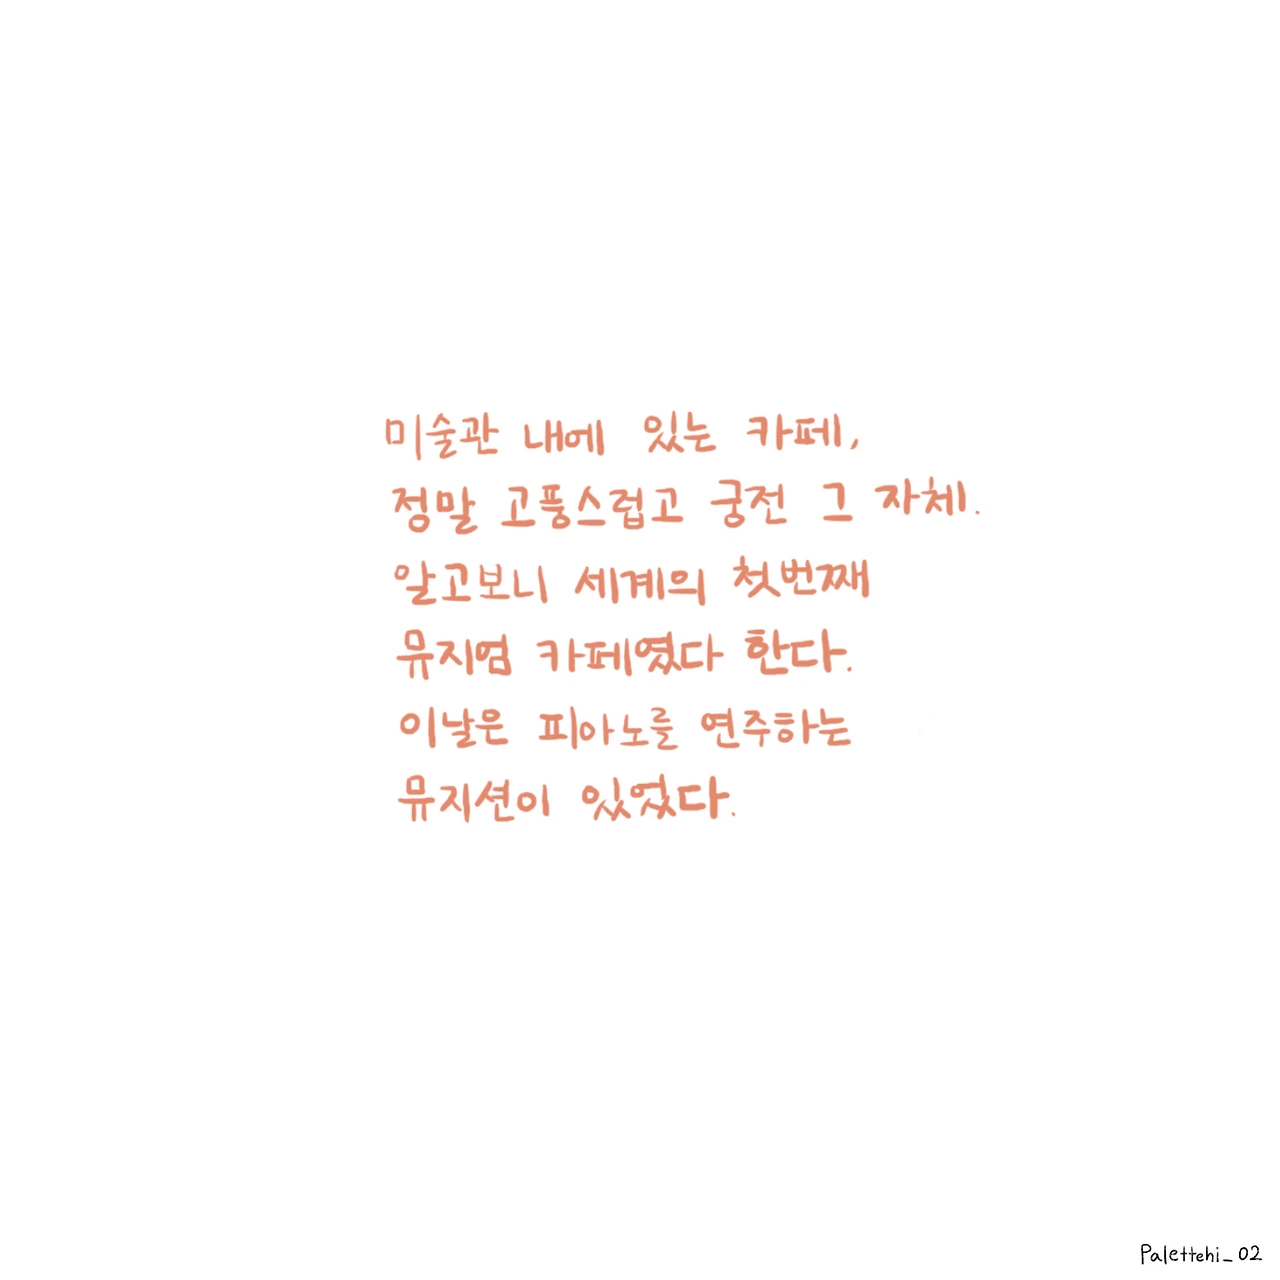 미술관 내에 있는 카페,
정말 고풍스럽고 궁전 그 자체.
알고보니 세계의 첫번째
뮤지엄 카페였다 한다.
이날은 피아노를 연주하는
뮤지션이 있었다.
Palettehi_02